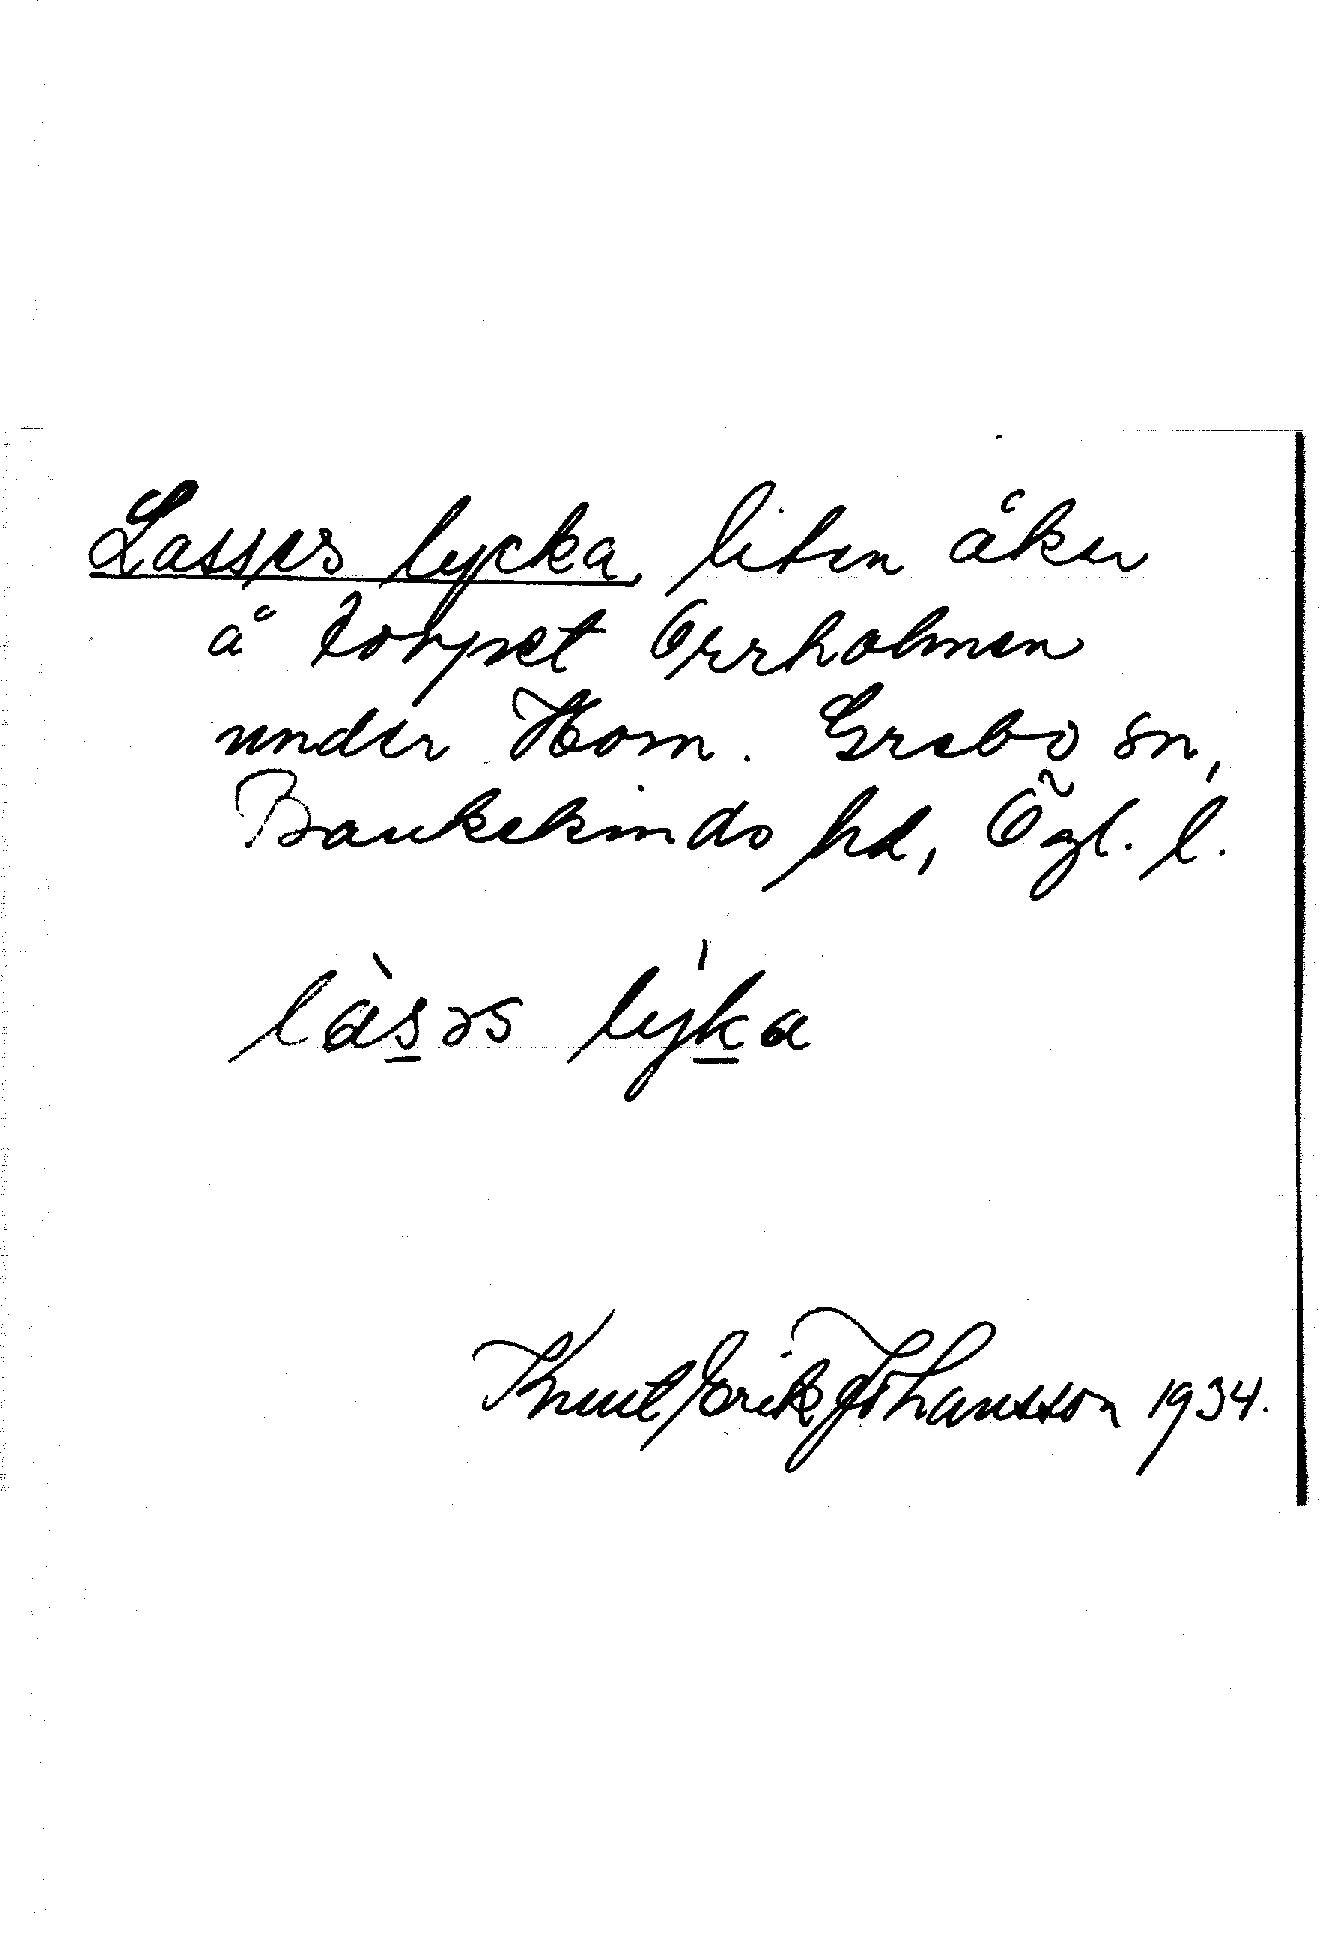 Lasses lycka, liten åker
å torpet Orrholmen
under Horn. Grebo sn,
Bankekinds hd, Ögl. l.
làs̲əs lýk̲a
Knut Erik Johansson 1934.